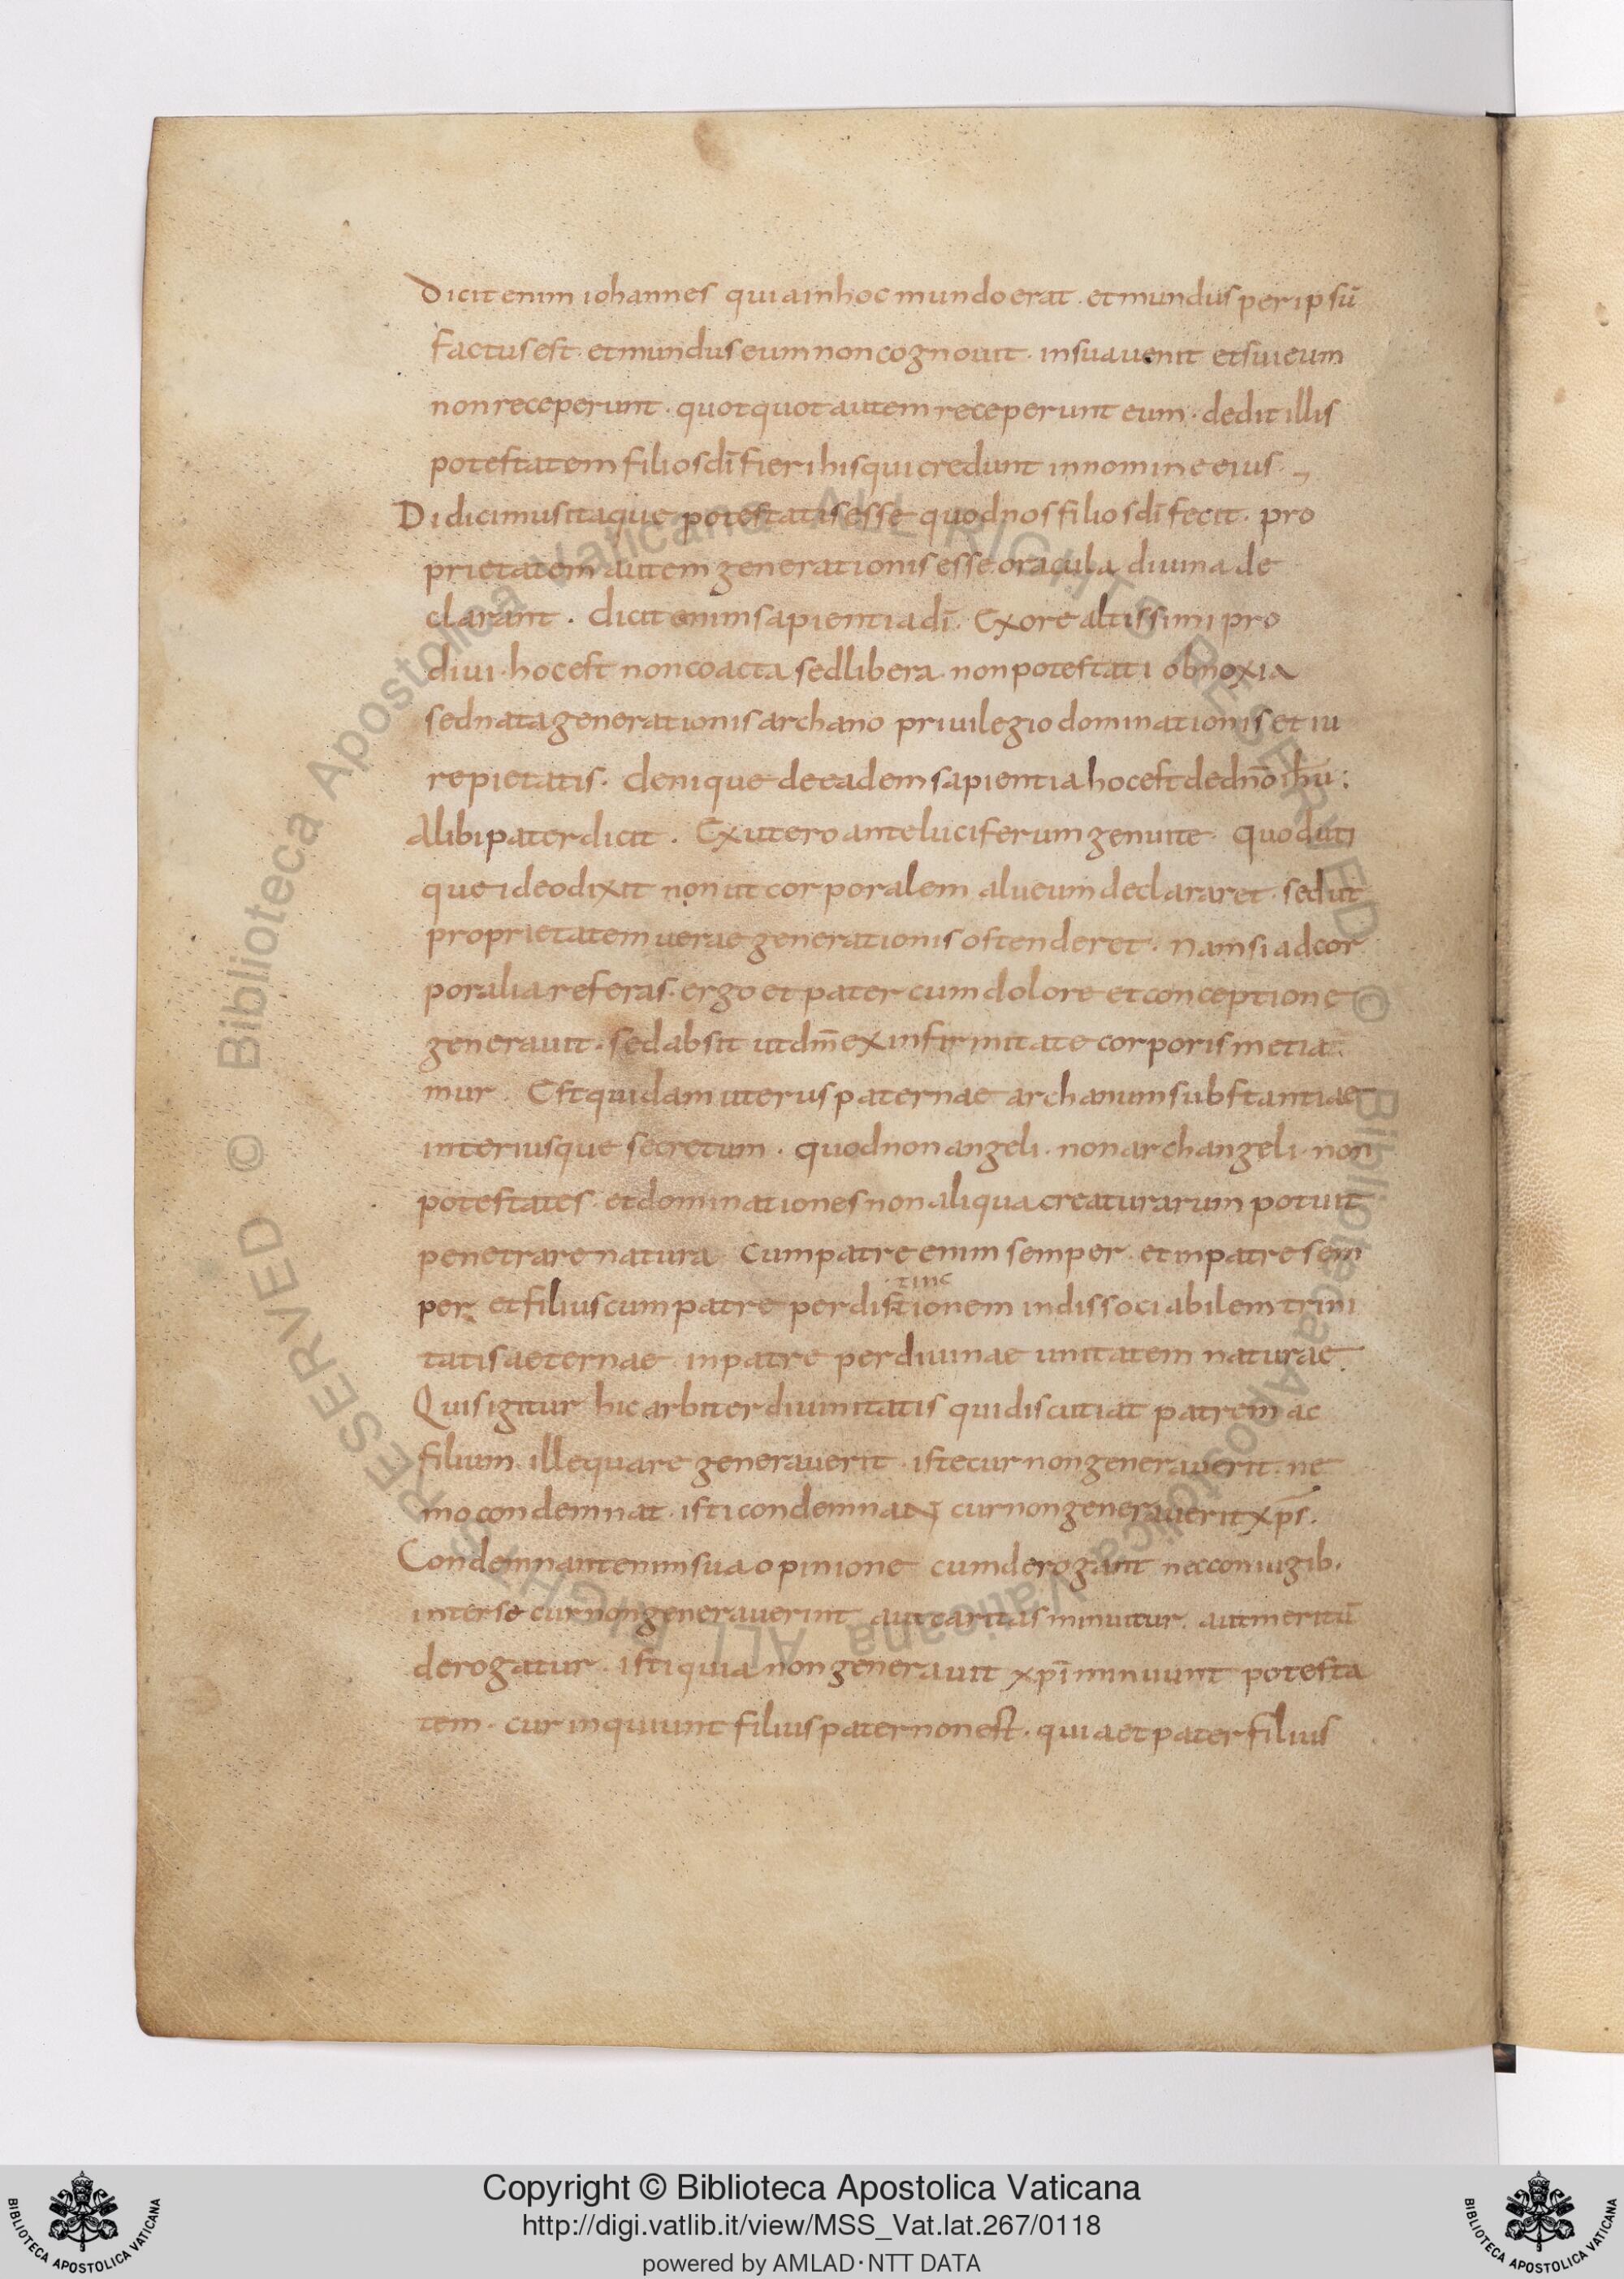 Dicit enim iohannes quia in hoc mundo erat . et mundus per ipsū
factus est . et mundus eum non cognouit . in sua uenit et sui eum
non receperunt . quotquot autem receperunt eum . dedit illis
potestatem filios dī fieri his qui credunt in nomine eius .
Didicimus itaque potestatis esse quod nos filios dī fecit . pro
prietatem autem generationis esse oracula diuina de
clarant . dicit enim sapientia dī . Ex ore altissimi pro
diui . hoc est non coacta sed libera . non potestati obnoxia
sed nata generationis archano priuilegio dominationis et iu
re pietatis . denique de eadem sapientia hoc est de dnō ihū :
Alibi pater dicit . Ex utero ante luciferum genui te . quod uti
que ideo dixit non ut corporalem alueum declararet . sed ut
proprietatem uerae generationis ostenderet . Nam si ad cor
poralia referas . ergo et pater cum dolore et conceptione
generauit . sed absit ut dm̄ ex infirmitate corporis metia
mur . Est quidam uterus paternae archanum substantiae
interiusque secretum . quod non angeli . non archangeli . non
potestates . et dominationes non aliqua creaturarum potuit
penetrare natura . Cum patre enim semper . et in patre sem
tinc
per . et filius cum patre per distionem indissociabilem trini
tatis aeternae . in patre per diuinae unitatem naturae .
Quis igitur hic arbiter diuinitatis qui discutiat patrem ac
filium . ille quare generauerit . iste cur non generauerit . ne
mo condemnat . isti condemnaNt cur non generauerit xp̄s .
Condemnant enim sua opinione cum derogant nec coniugib .
inter se cur non generauerint aut caritas minuitur . aut meritū
derogatur . isti quia non generauit xpī minuunt potesta
tem . cur inquiunt filius pater non est . quia et pater filius
© Biblioteca Apostolica Vaticana ALL RIGHTS RESERVED © Biblioteca Apostolica Vaticana ALL RIGHTS RESERVED
BIBLIOTECA APOSTOLICA VATICANA
Copyright © Biblioteca Apostolica Vaticana
http://digi.vatlib.it/view/MSS_Vat.lat.267/0118
powered by AMLAD·NTT DATA
BIBLIOTECA APOSTOLICA VATICANA